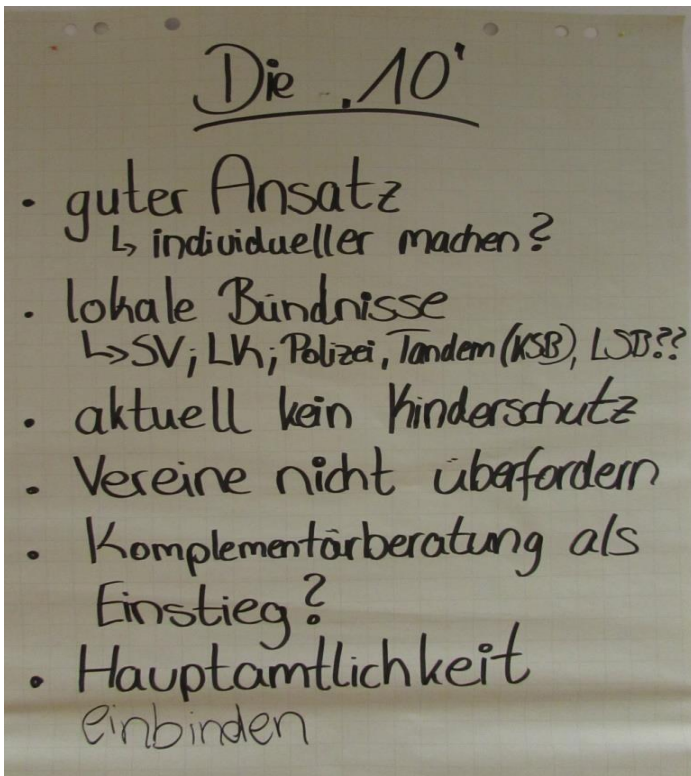 Die „10“
• guter Ansatz
↳ individueller machen?
• lokale Bündnisse
↳ SV; LK; Polizei, Tandem (KSB), LSB??
• aktuell kein Kinderschutz
• Vereine nicht überfordern
• Komplementärberatung als
Einstieg?
• Hauptamtlichkeit
einbinden